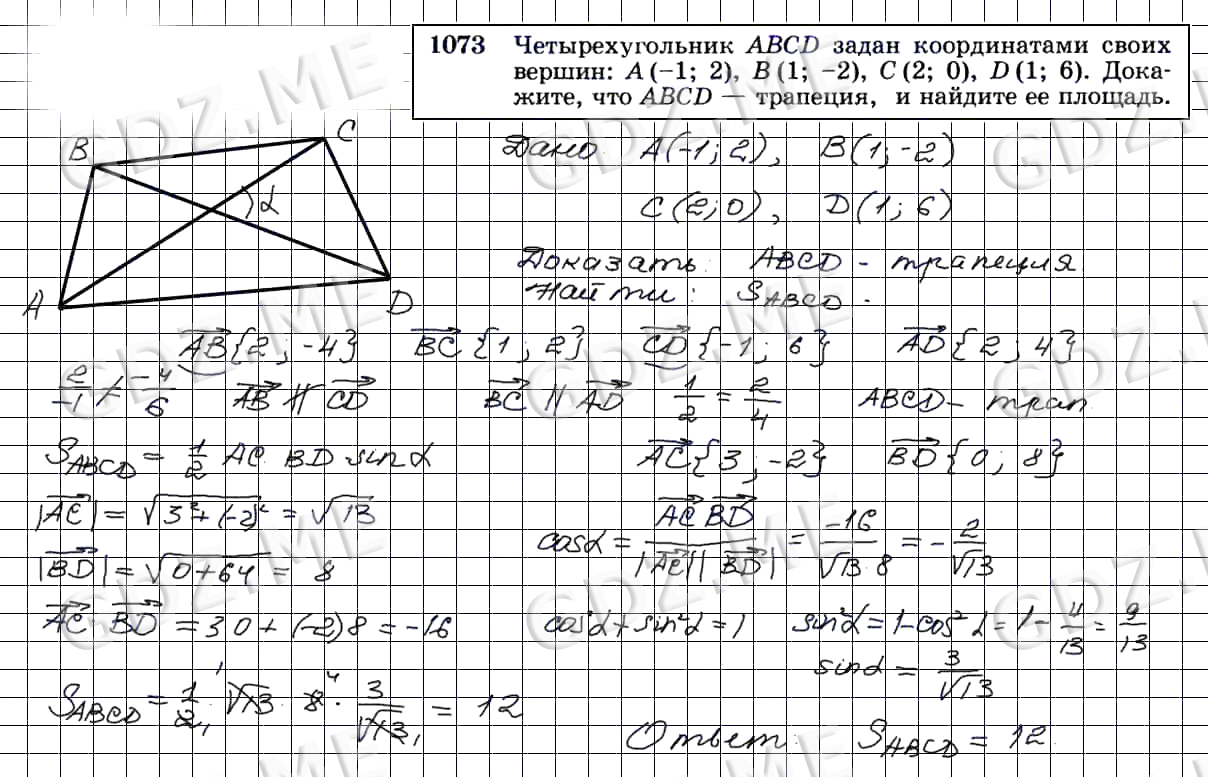 1073 Четырехугольник ABCD задан координатами своих
вершин: A(−1; 2), B(1; −2), C(2; 0), D(1; 6). Дока-
жите, что ABCD — трапеция, и найдите ее площадь.
B C α A D
Дано A(-1; 2), B(1; -2)
C(2; 0), D(1; 6)
Доказать: ABCD - трапеция
Найти: S_ABCD.
AB{2; -4} BC{1; 2} CD{-1; 6} AD{2; 4}
2/-1 ≠ -4/6 AB ∦ CD BC || AD 1/2 = 2/4 ABCD - трап.
S_ABCD = 1/2 AC BD sinα AC{3; -2} BD{0; 8}
|AC| = √(3² + (-2)²) = √13
cosα = AC BD / |AC||BD| = -16 / √13 8 = - 2/√13
|BD| = √(0+64) = 8
AC BD = 3 0 + (-2) 8 = -16 cos²α + sin²α = 1 sin²α = 1 - cos²α = 1 - 4/13 = 9/13
sinα = 3/√13
S_ABCD = 1/2 · √13 · 8 · 3/√13 = 12
Ответ: S_ABCD = 12
GDZ.ME